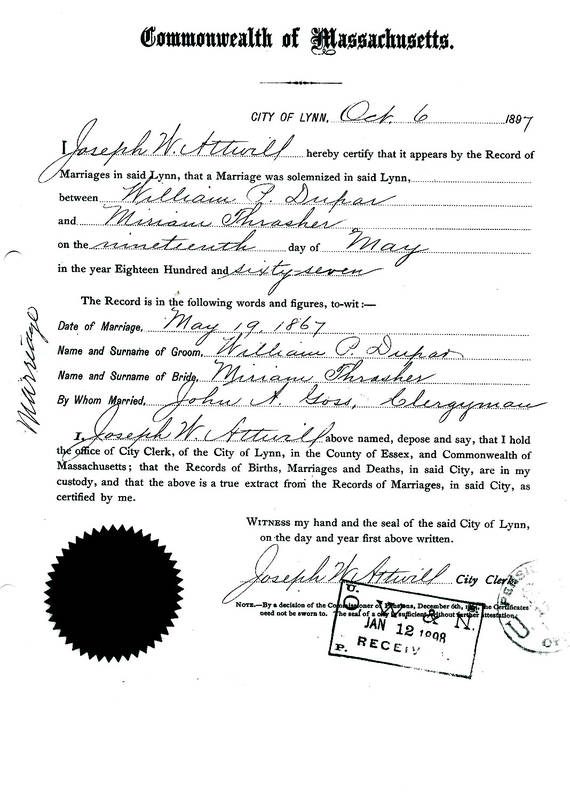 Commonwealth of Massachusetts.
CITY OF LYNN, Oct. 6 1897
I Joseph W. Attwill hereby certify that it appears by the Record of
Marriages in said Lynn, that a Marriage was solemnized in said Lynn,
between William P. Dupar
and Miriam Thrasher
on the nineteenth day of May
in the year Eighteen Hundred and sixty-seven
The Record is in the following words and figures, to-wit :—
Date of Marriage, May 19, 1867
Name and Surname of Groom, William P. Dupar
Name and Surname of Bride, Miriam Thrasher
By Whom Married, John A. Goss, Clergyman
Marriage
I, Joseph W. Attwill above named, depose and say, that I hold
the office of City Clerk, of the City of Lynn, in the County of Essex, and Commonwealth of
Massachusetts ; that the Records of Births, Marriages and Deaths, in said City, are in my
custody, and that the above is a true extract from the Records of Marriages, in said City, as
certified by me.
WITNESS my hand and the seal of the said City of Lynn,
on the day and year first above written.
Joseph W. Attwill City Clerk
NOTE.—By a decision of the Commissioner of Pensions, December 6th, the Certificates
need not be sworn to. The seal of a city is sufficient without further attestation.
U.
O. W. & N.
JAN 12 1898
P. RECEIV
PENSI
U